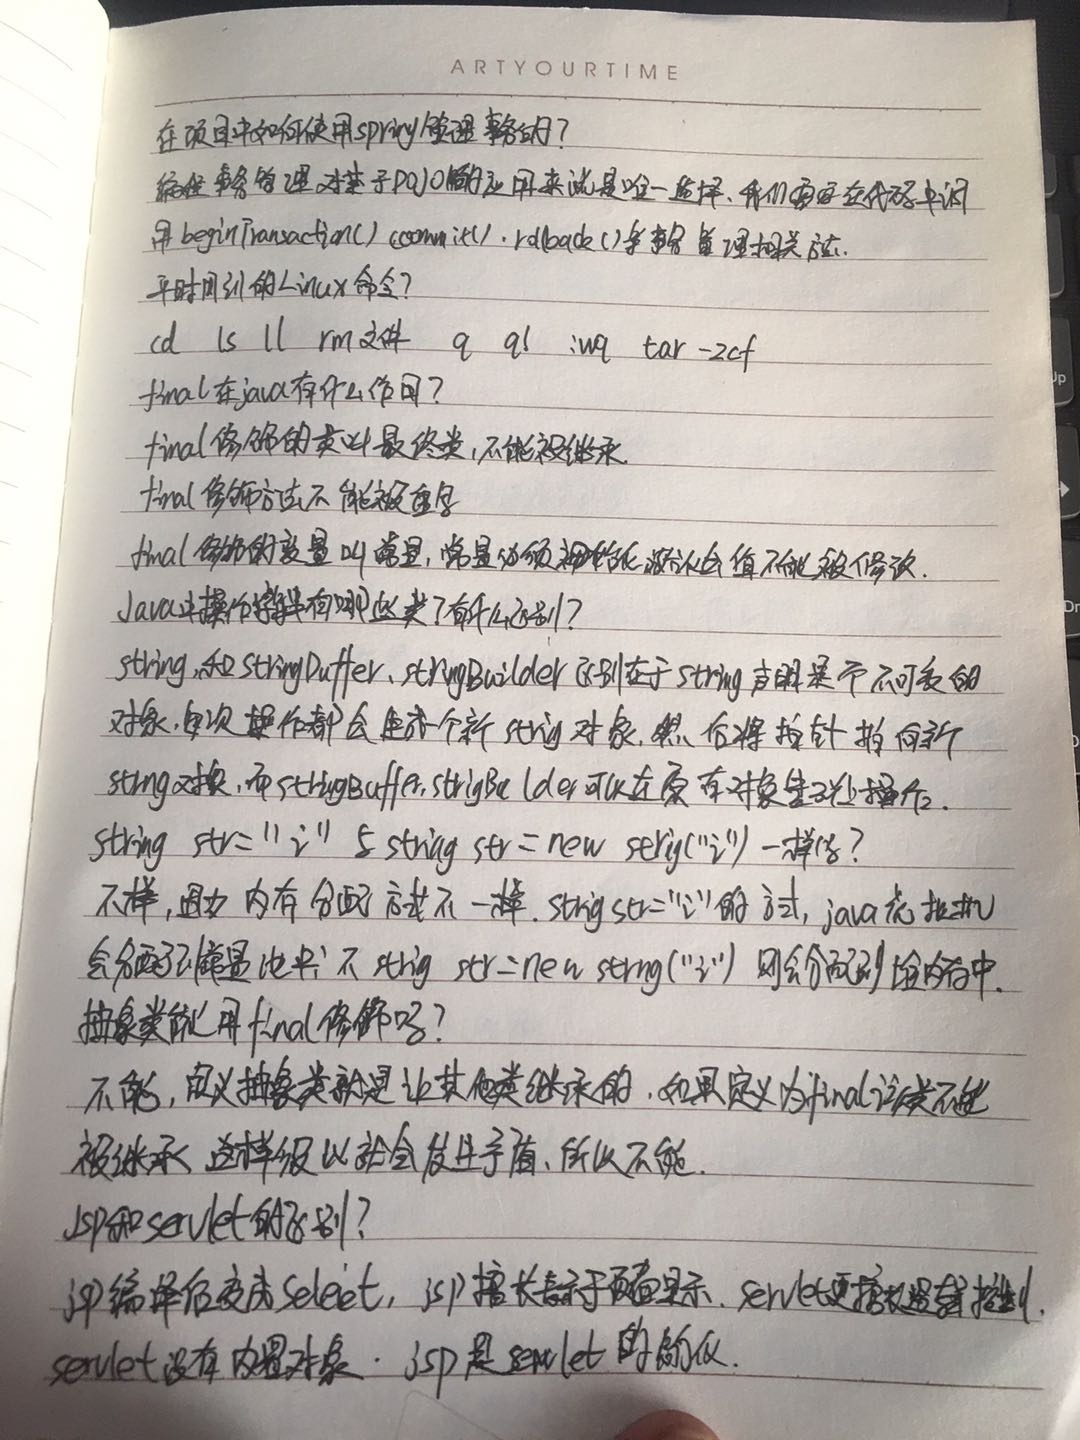 ARTYOURTIME
在项目中如何使用spring管理事务的?
编程事务管理对基于POJO的应用来说是唯一选择、我们需要在代码中调
用beginTransaction() commit()、rollback()等事务管理相关方法.
平时用到的Linux命令?
cd ls ll rm文件 q q! :wq tar -zcf
final在java有什么作用?
final修饰的类叫最终类,不能被继承.
final修饰方法不能被重写
final修饰的变量叫常量,常量必须初始化 值不能被修改.
Java中操作字符串有哪些类?有什么区别?
string,和stringBuffer、stringBuilder区别在于string声明是不可变的
对象,每次操作都会生成个新string对象,然后将指针指向新
string对象,而stringBuffer,strigBuilder可以在原有对象基础上操作.
string str="i"与string str=new strig("i")一样吗?
不样,因为内存分配方式不一样.strig str="i"的方式,java虚拟机
会分配到常量池中;不strig str=new strng("i")则会分配到堆内存中.
抽象类能用final修饰吗?
不能,定义抽象类就是让其他类继承的,如果定义为final该类不能
被继承、这样彼此就会发生矛盾、所以不能.
jsp和servlet的区别?
jsp编译后变成seleiet, jsp擅长表示于页面显示.servlet更擅长逻辑控制.
servlet没有内置对象.jsp是servlet的简仪.